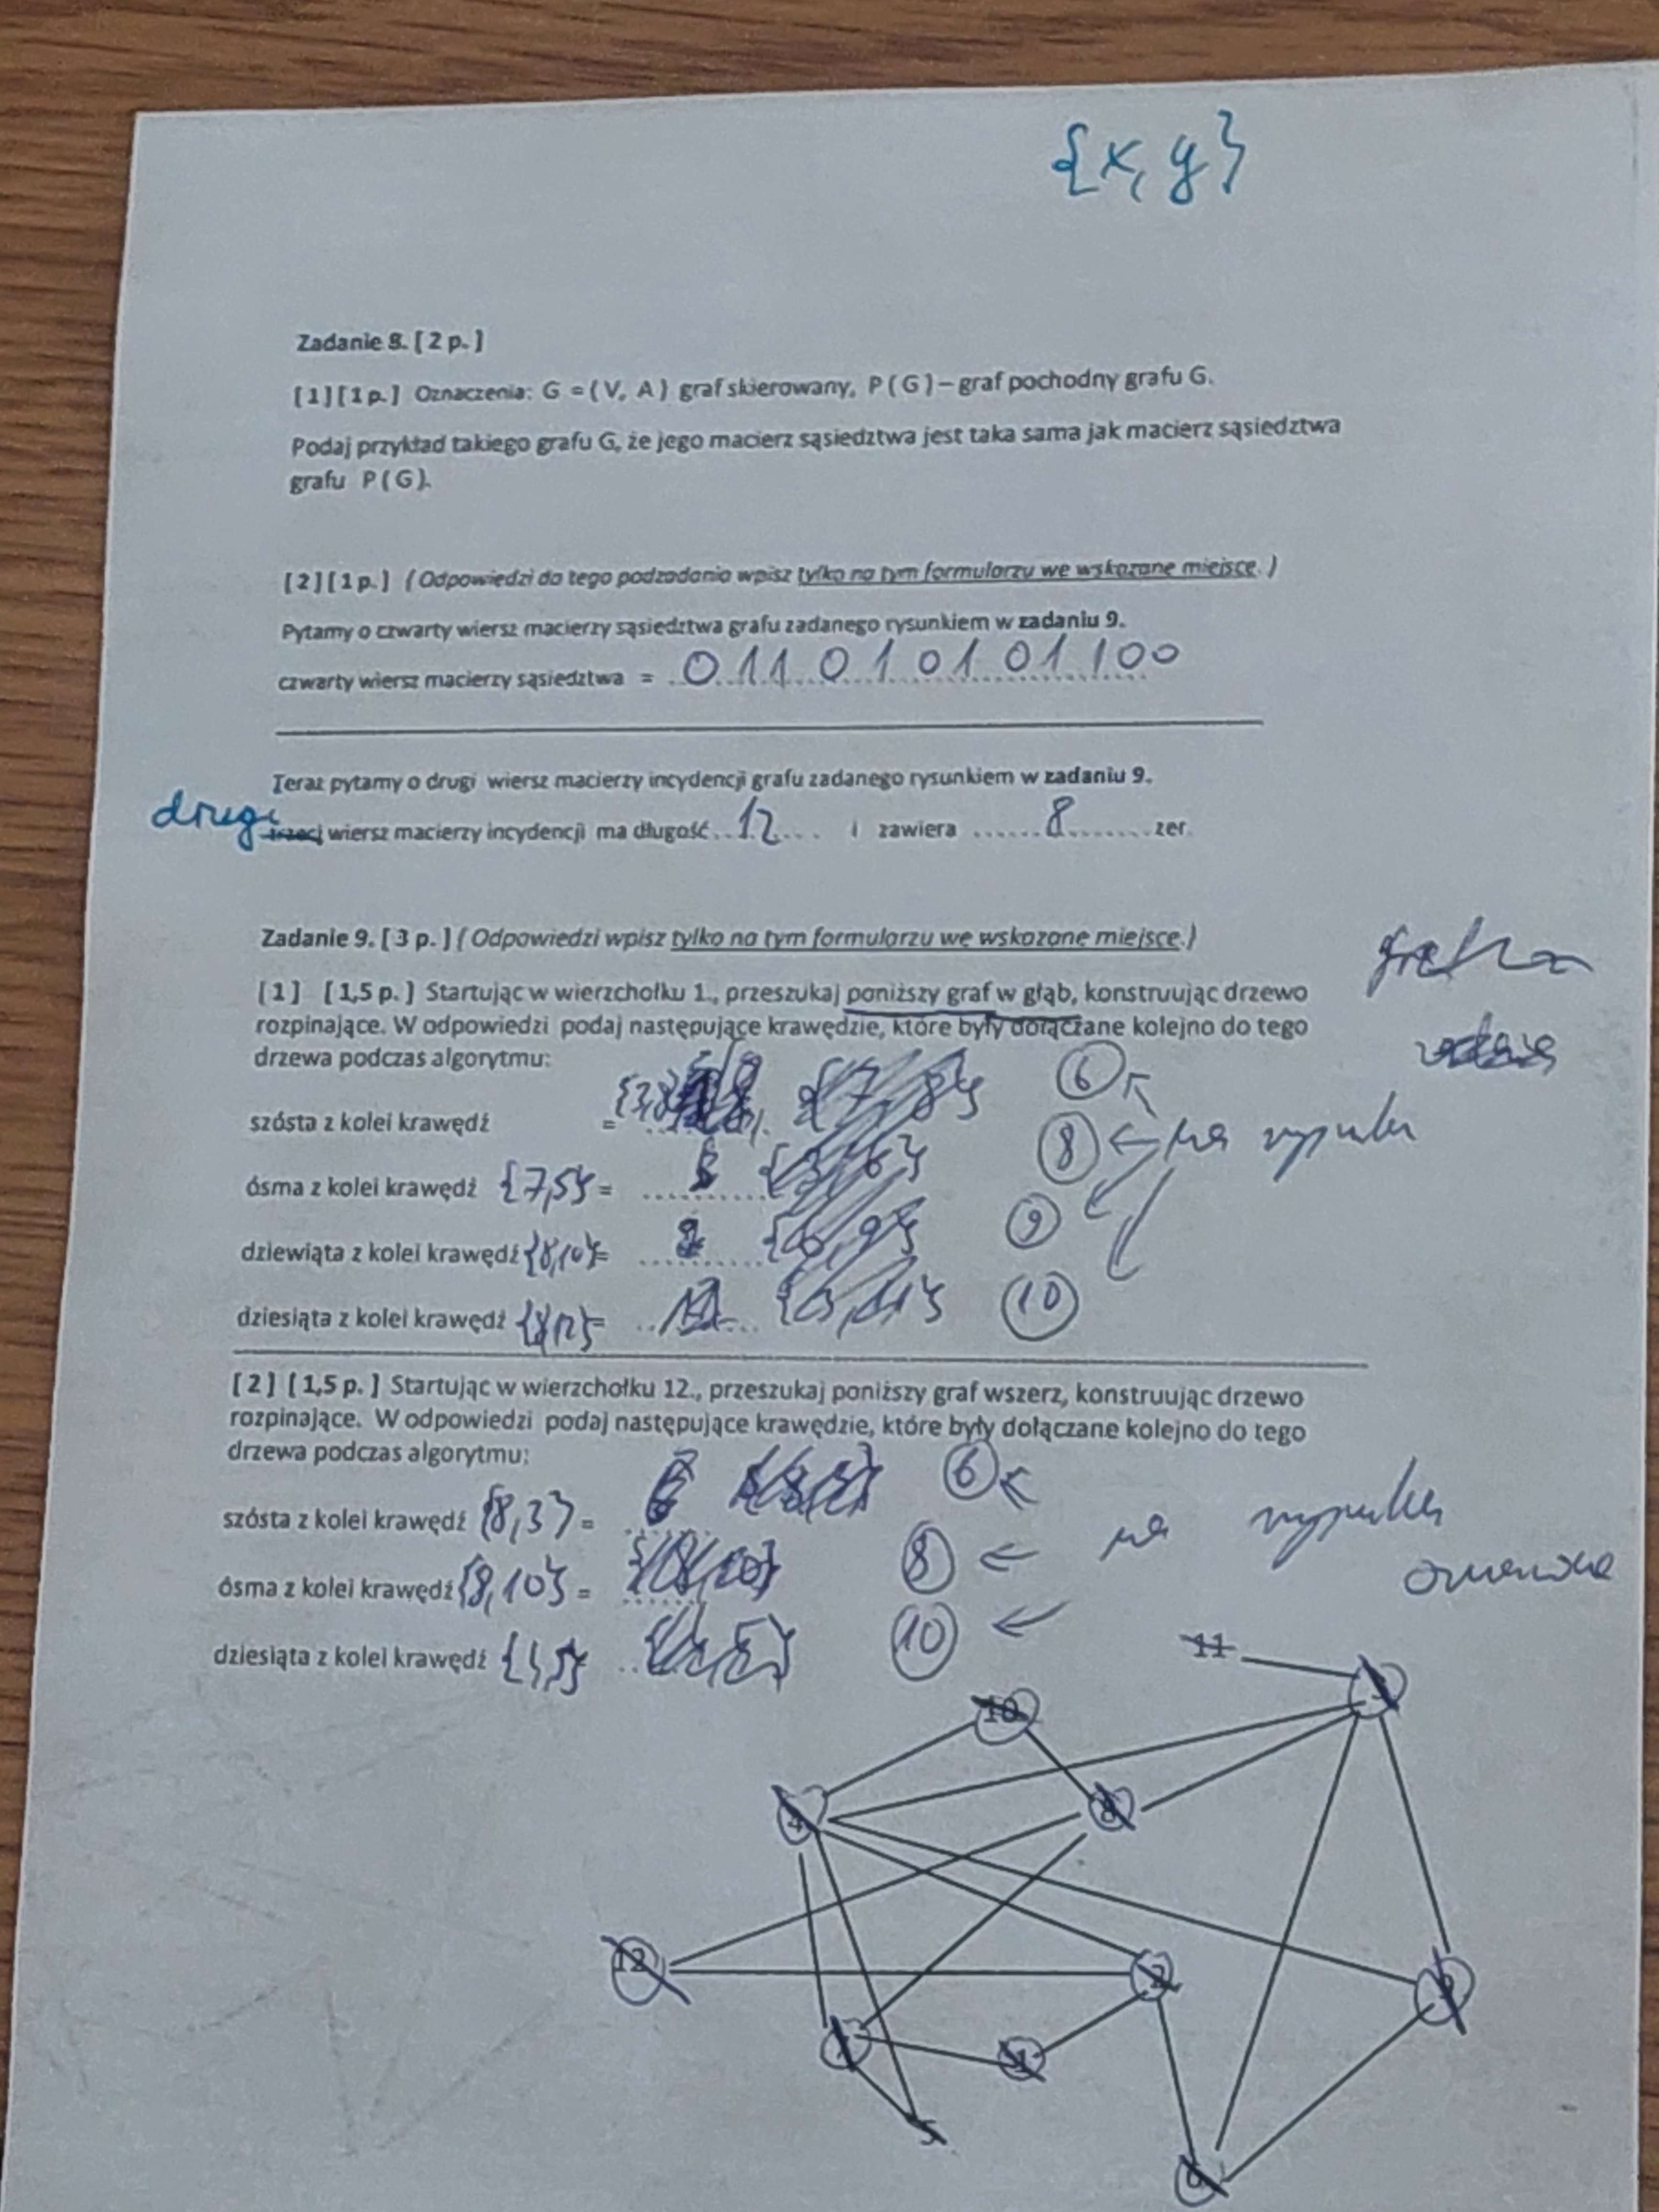 {x, y}
Zadanie 8. [ 2 p. ]
[ 1 ] [ 1 p. ] Oznaczenia: G = ( V, A ) graf skierowany, P ( G ) – graf pochodny grafu G.
Podaj przykład takiego grafu G, że jego macierz sąsiedztwa jest taka sama jak macierz sąsiedztwa
grafu P ( G ).
[ 2 ] [ 1 p. ] ( Odpowiedzi do tego podzadania wpisz tylko na tym formularzu we wskazane miejsce. )
Pytamy o czwarty wiersz macierzy sąsiedztwa grafu zadanego rysunkiem w zadaniu 9.
czwarty wiersz macierzy sąsiedztwa = 0 1 1 0 1 0 1 0 1 1 0 0
Teraz pytamy o drugi wiersz macierzy incydencji grafu zadanego rysunkiem w zadaniu 9.
drugi trzeci wiersz macierzy incydencji ma długość 12 i zawiera 8 zer
Zadanie 9. [ 3 p. ] ( Odpowiedzi wpisz tylko na tym formularzu we wskazane miejsce. )
[ 1 ] [ 1,5 p. ] Startując w wierzchołku 1., przeszukaj poniższy graf w głąb, konstruując drzewo
rozpinające. W odpowiedzi podaj następujące krawędzie, które były dołączane kolejno do tego
drzewa podczas algorytmu:
szósta z kolei krawędź = 6
ósma z kolei krawędź {7,5} = 8 na
dziewiąta z kolei krawędź {8,10} = 9
dziesiąta z kolei krawędź {8,12} = 10
[ 2 ] [ 1,5 p. ] Startując w wierzchołku 12., przeszukaj poniższy graf wszerz, konstruując drzewo
rozpinające. W odpowiedzi podaj następujące krawędzie, które były dołączane kolejno do tego
drzewa podczas algorytmu:
szósta z kolei krawędź {8,3} = 6
ósma z kolei krawędź {8,10} = 8 na
dziesiąta z kolei krawędź 10
11
3
10
4
8
12
2
9
7
1
5
6